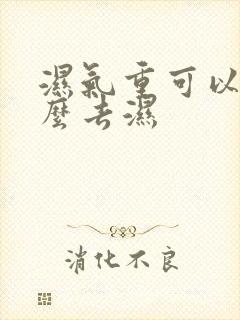 濕氣重可以
麼去濕
消化不良